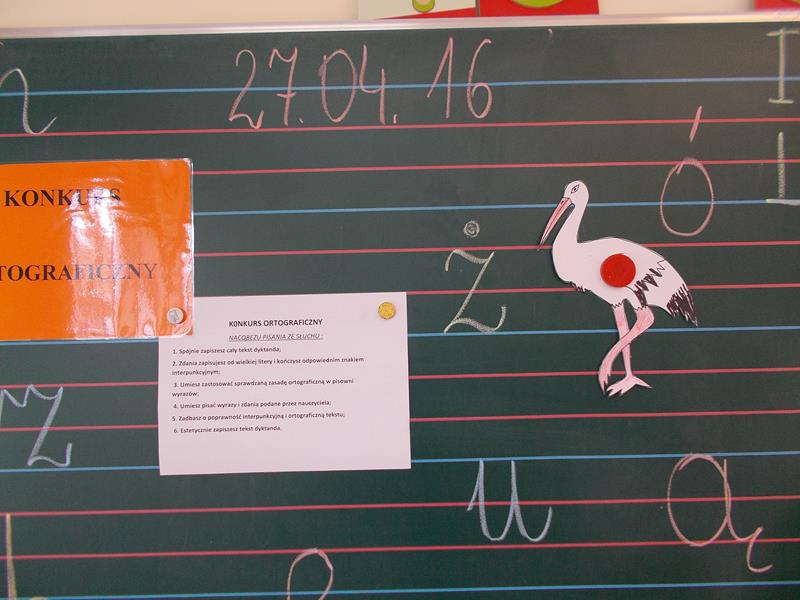 27.04.16
KONKURS
TOGRAFICZNY
ó
ż
KONKURS ORTOGRAFICZNY
NACOBEZU PISANIA ZE SŁUCHU :
1. Spójnie zapiszesz cały tekst dyktanda;
2. Zdania zapisujesz od wielkiej litery i kończysz odpowiednim znakiem
interpunkcyjnym;
3. Umiesz zastosować sprawdzaną zasadę ortograficzną w pisowni
wyrazów;
4. Umiesz pisać wyrazy i zdania podane przez nauczyciela;
5. Zadbasz o poprawność interpunkcyjną i ortograficzną tekstu;
6. Estetycznie zapiszesz tekst dyktanda.
z
u
ą